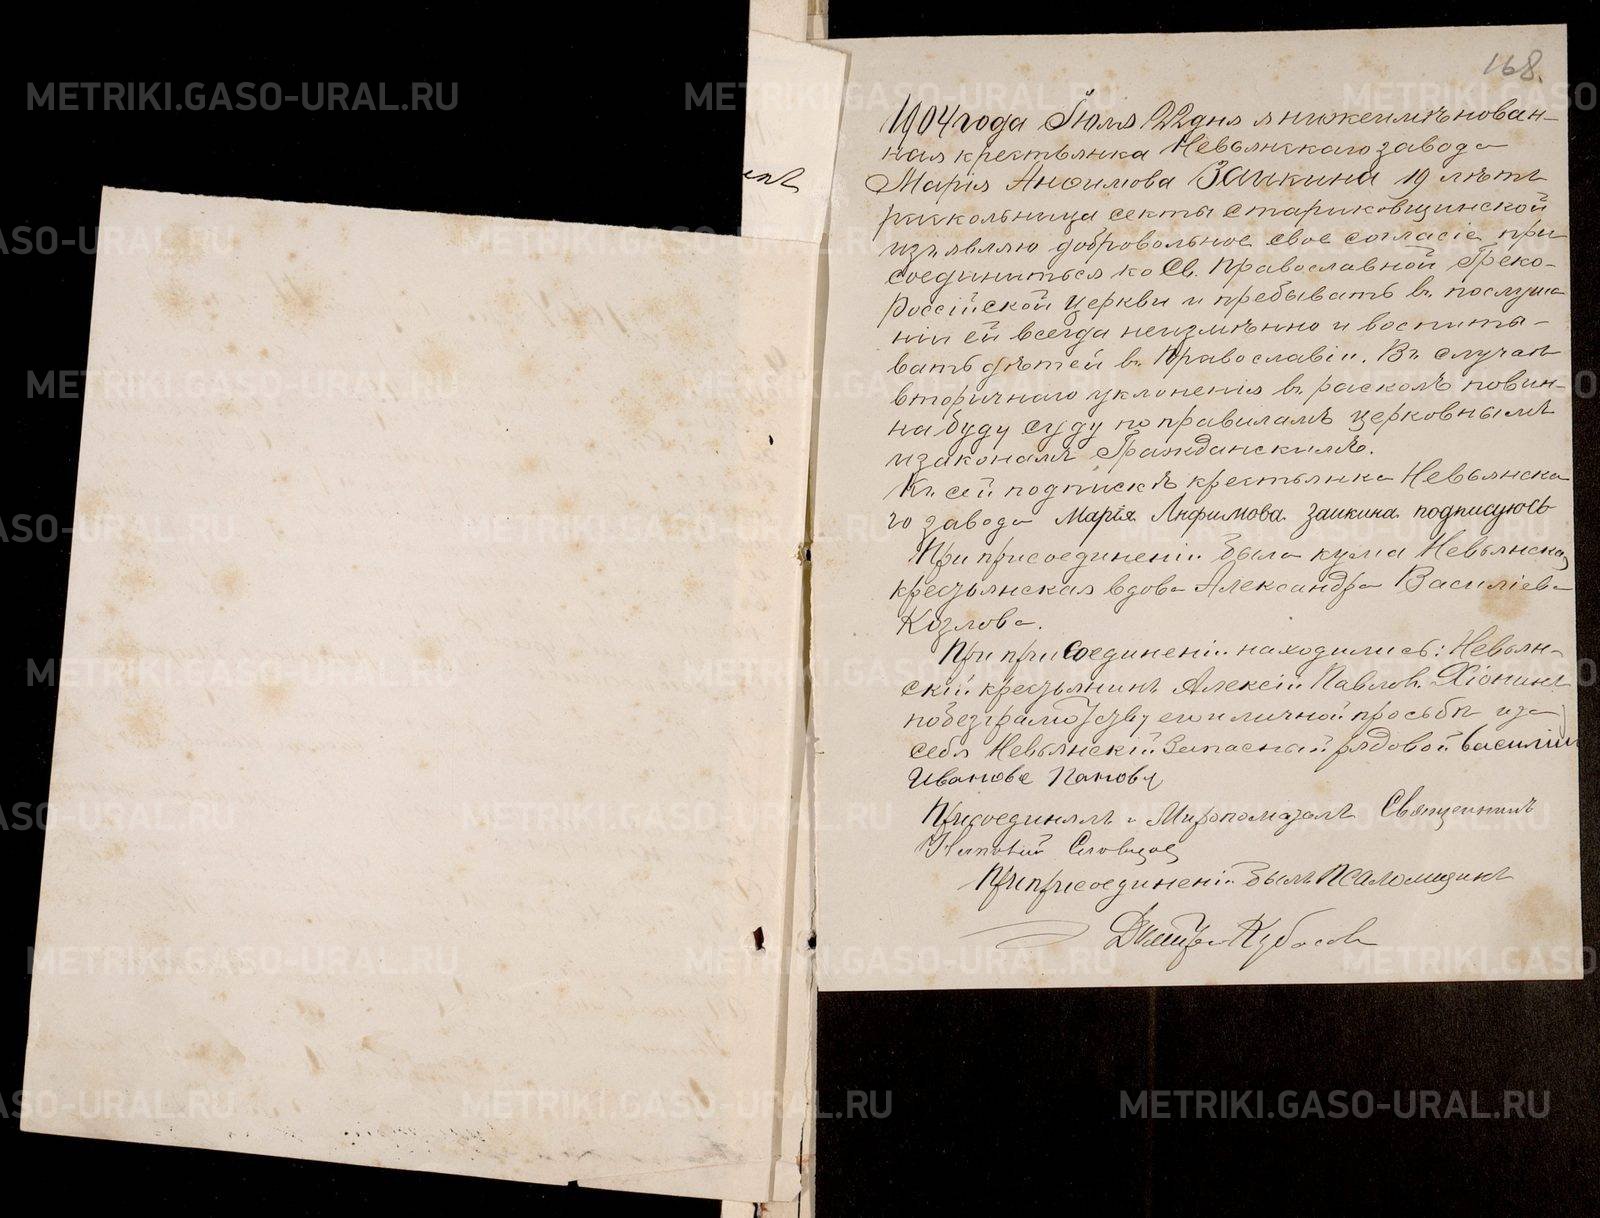 168.
1904 года Іюля 22 дня я нижеимѣнован-
ная крестьянка Невьянскаго завода
Марія Анфимова Заикина 19 лѣтъ
раскольница секты стариковщинской
изъявляю добровольное свое согласіе при
соединиться ко Св. Православной Греко-
Россійской Церкви и пребывать въ послуша
ніи ей всегда неизмѣнно и воспиты-
вать дѣтей въ Православіи. Въ случаѣ
вторичнаго уклоненія въ расколъ повин-
на буду суду по правиламъ церковнымъ
и законамъ Гражданскимъ.
Къ сей подпискѣ крестьянка Невьянска
го завода Марія Анфимова Заикина подписуюсь
При присоединеніи была кума Невьянская
крестьянская вдова Александра Василіева
Козлова.
При присоединеніи находились: Невьян-
скій крестьянинъ Алексій Павловъ
по безграмотству его и личной просьбѣ и за
себя Невьянскій Запасный рядовой Василій
Ивановъ Пановъ
Присоединялъ и Миропомазалъ Священникъ
Словцов
При присоединеніи былъ Псаломщикъ
Дмитрій Кубасовъ
METRIKI.GASO-URAL.RU